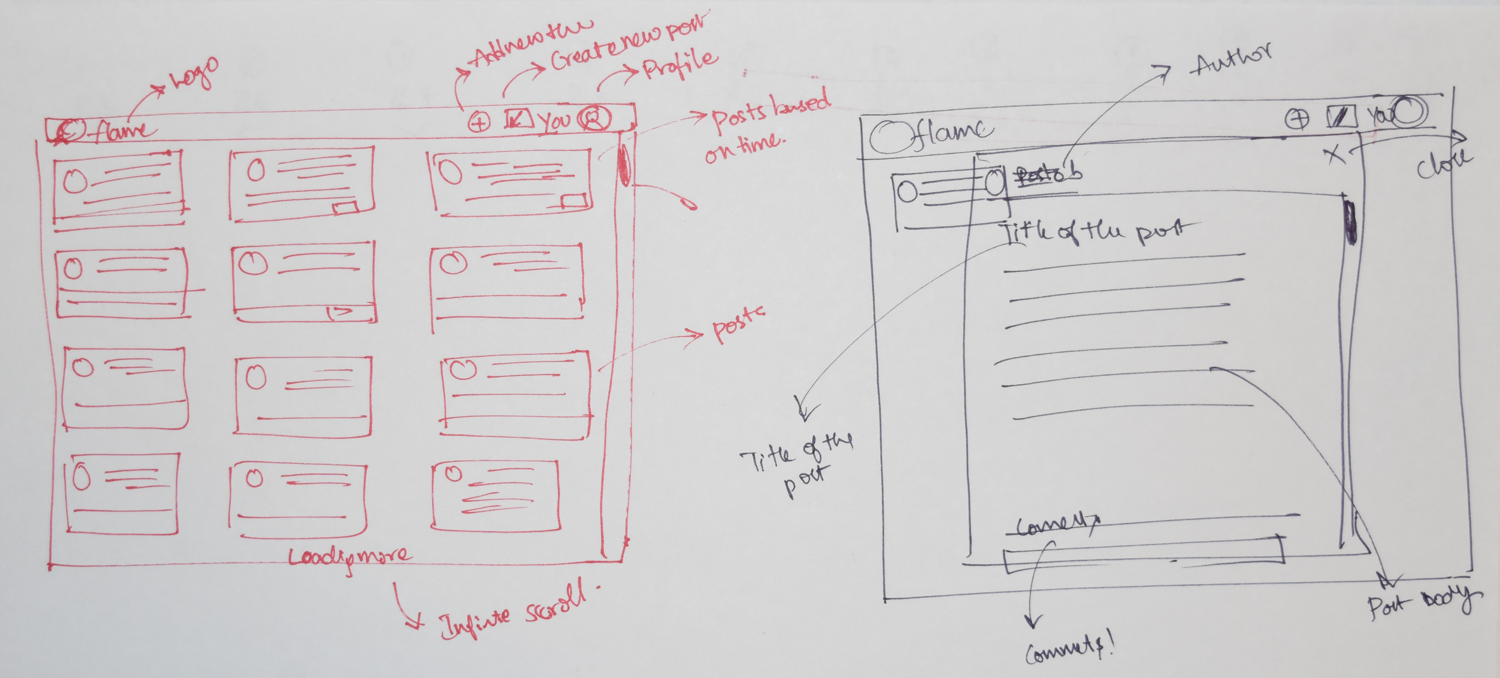 Logo
Add new
Create new post
Profile
flame
You
Posts based
on time.
Posts
Loading more
Infinite scroll.
Author
flame
You
X
Close
Title of the post
Title of the
post
Comments
Comments!
Post Body